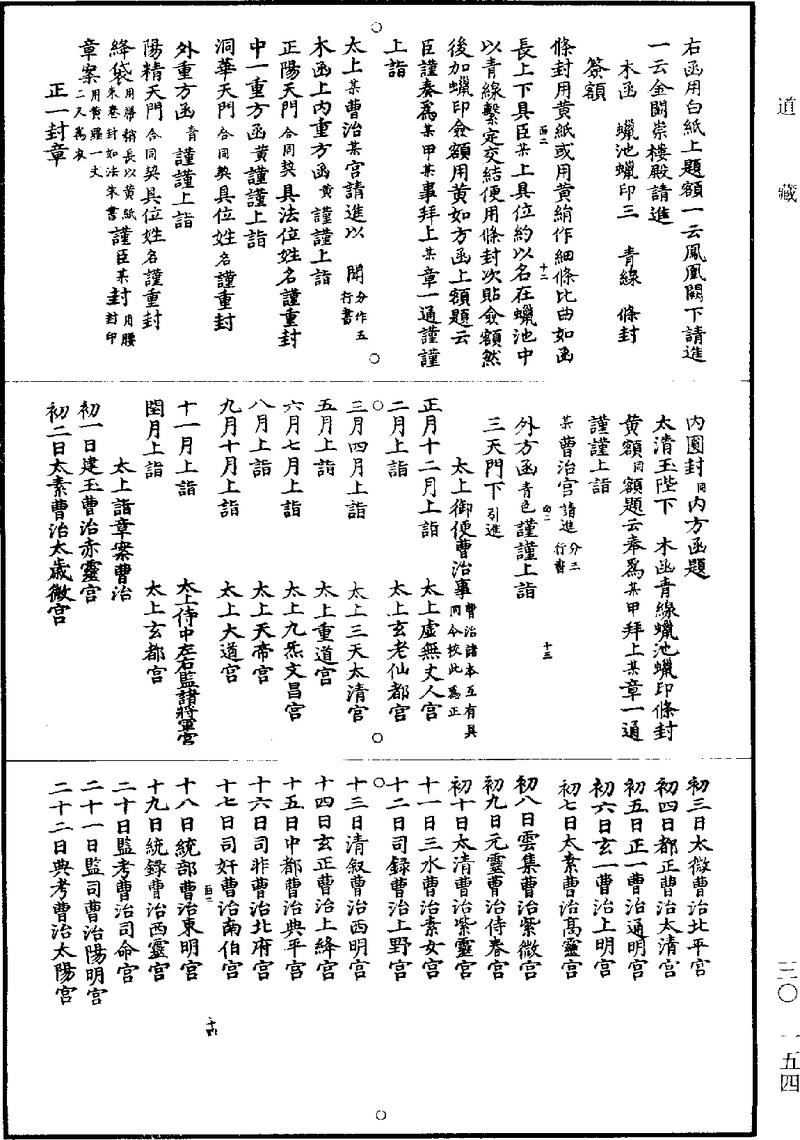 道藏
三〇　一五四
右函用白紙上題額一云鳳凰闕下請進
一云金闕崇樓殿請進
木函　蠟池蠟印三　青線　條封
簽額
條封用黃紙或用黃絹作細條比曲如函
長上下具臣某上具位約以名在蠟池中
以青線繫定交結便用條封次貼僉額然
後加蠟印僉額用黃如方函上額題云
臣謹奏為某甲某事拜上某章一通謹謹
上詣
太上某曹治某宮請進以　聞分作五行書
木函上內重方函黃謹謹上詣
正陽天門合同契具法位姓名謹重封
中一重方函黃謹謹上詣
洞華天門合同契具位姓名謹重封
外重方函青謹謹上詣
陽精天門合同契具位姓名謹重封
絳袋用勝稍長以黃紙朱卷封如法朱書謹臣某封用腰封印
章案用黃羅一丈二尺為衣
正一封章
內圓封同內方函題
太清玉陛下　木函青線蠟池蠟印條封
黃額同額題云奉為某甲拜上某章一通
謹謹上詣
某曹治宮請進分二行書
外方函青色謹謹上詣
三天門下引進
太上御便曹治事曹治諸本互有具同今校此為正
正月十二月上詣　太上虛無丈人宮
二月上詣　太上玄老仙都宮
三月四月上詣　太上三天太清宮
五月上詣　太上重道宮
六月七月上詣　太上九炁文昌宮
八月上詣　太上天帝宮
九月十月上詣　太上大道宮
十一月上詣　太上侍中左右監諸將軍宮
閏月上詣　太上玄都宮
太上詣章案曹治
初一日建玉曹治赤靈宮
初二日太素曹治太歲微宮
初三日太微曹治北平宮
初四日都正曹治太清宮
初五日正一曹治通明宮
初六日玄一曹治上明宮
初七日太素曹治高靈宮
初八日雲集曹治紫微宮
初九日元靈曹治侍春宮
初十日太清曹治紫靈宮
十一日三水曹治素女宮
十二日司錄曹治上野宮
十三日清叙曹治西明宮
十四日玄正曹治上絳宮
十五日中都曹治典平宮
十六日司非曹治北府宮
十七日司奸曹治南伯宮
十八日統部曹治東明宮
十九日統錄曹治西靈宮
二十日監考曹治司命宮
二十一日監司曹治陽明宮
二十二日典考曹治太陽宮